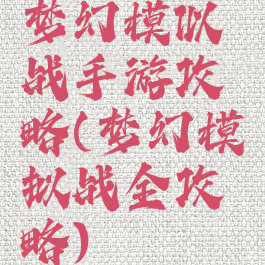 梦幻模似
战手游攻
略(梦幻模
拟战全攻
略)